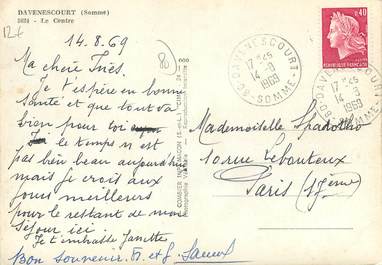 DAVENESCOURT (Somme)
5024 - Le Centre
14.8.69
Ma chère Inès.
Je t'espère en bonne
santé et que tout va
bien pour toi
Ici le temps n'est
pas bien beau aujourd'hui
mais je crois aux
jours meilleurs
pour le restant de mon
séjour ici
Je t'embrasse Janette
Bon Souvenir.
0,40
REPUBLIQUE FRANCAISE
80 DAVENESCOURT
17 H 45
14-8
1969
SOMME
Mademoiselle
10 rue Lebouteux
Paris (17ème)